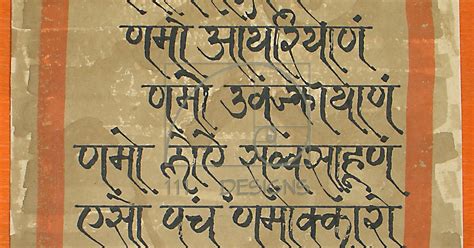 णमो आयरियाणं
णमो उवज्झायाणं
णमो लोऐ सव्वसाहूणं
DESIGNS
एसो पंच णमोक्कारो